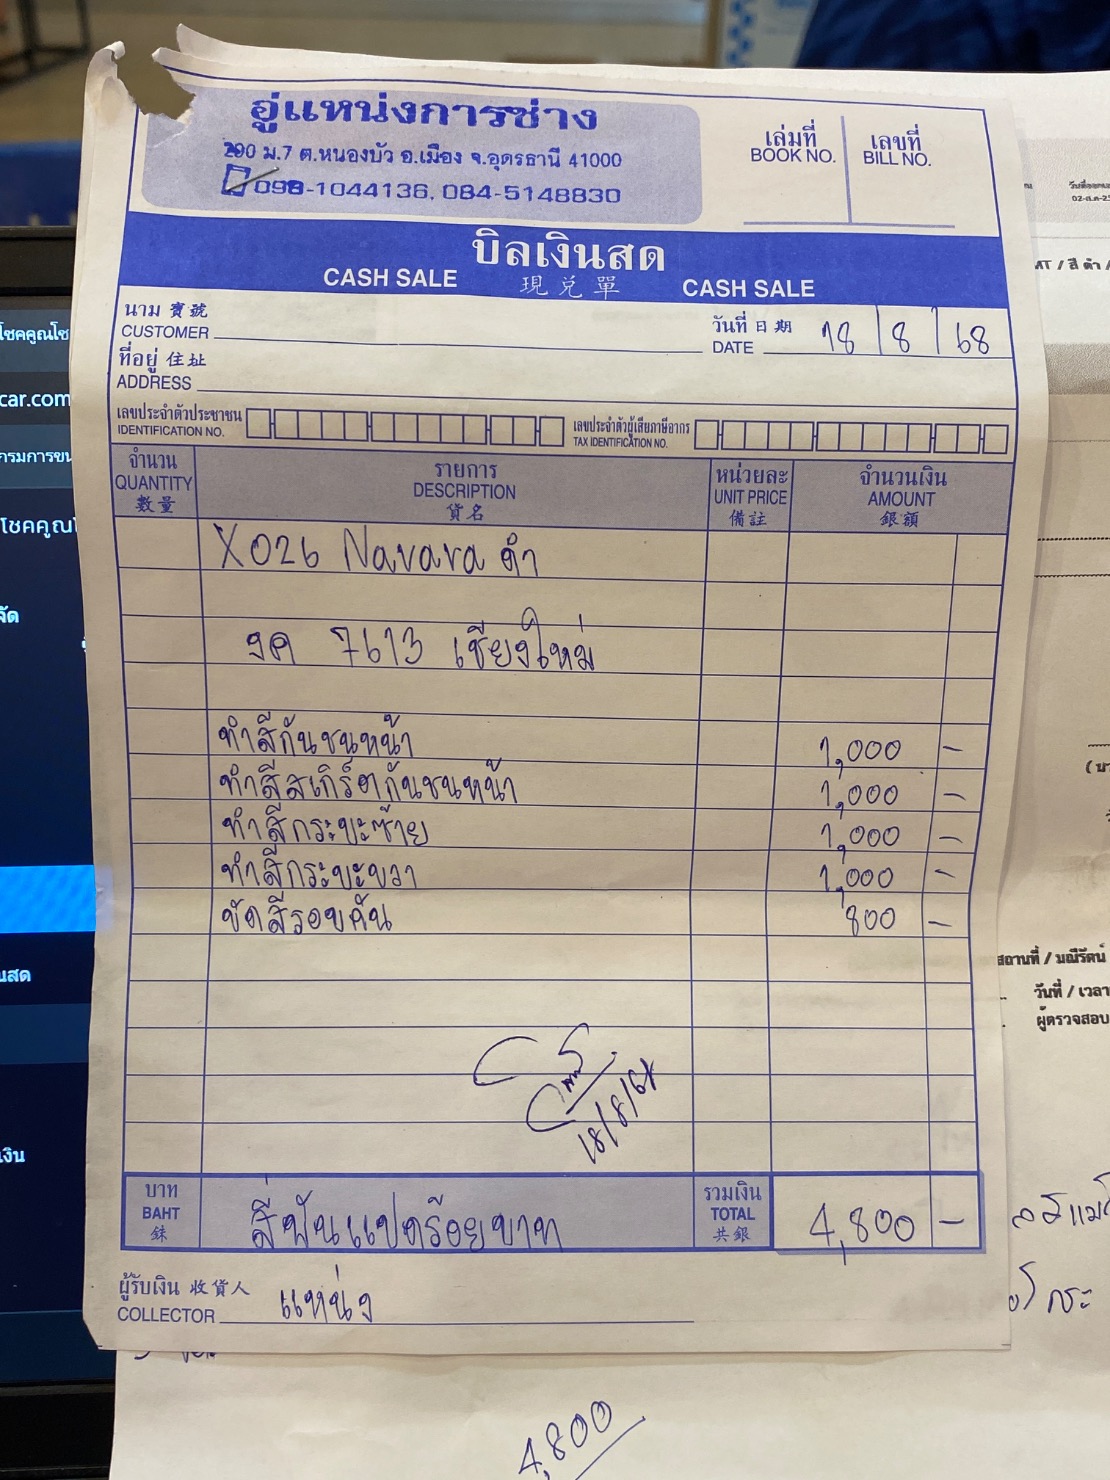 อู่แหน่งการช่าง
290 ม.7 ต.หนองบัว อ.เมือง จ.อุดรธานี 41000
098-1044136, 084-5148830
เล่มที่
BOOK NO.
เลขที่
BILL NO.
บิลเงินสด
CASH SALE 現兌單 CASH SALE
นาม 寶號
CUSTOMER
วันที่ 日期
DATE 18/8/68
ที่อยู่ 住址
ADDRESS
เลขประจำตัวประชาชน
IDENTIFICATION NO.
เลขประจำตัวผู้เสียภาษีอากร
TAX IDENTIFICATION NO.
จำนวน
QUANTITY
數量
รายการ
DESCRIPTION
貨名
หน่วยละ
UNIT PRICE
備註
จำนวนเงิน
AMOUNT
銀額
X026 Navara ดำ
งค 7613 เชียงใหม่
ทำสีกันชนหน้า 1,000 -
ทำสีสเกิร์ตกันชนหน้า 1,000 -
ทำสีกระบะซ้าย 1,000 -
ทำสีกระบะขวา 1,000 -
ขัดสีรอบคัน 800 -
18/8/68
บาท
BAHT
銖
สี่พันแปดร้อยบาท
รวมเงิน
TOTAL
共銀
4,800 -
ผู้รับเงิน 收貨人
COLLECTOR แหน่ง
4,800
โชคคูณโช
car.com
กรมการขน
โชคคูณโ
จัด
นสด
เงิน
MT / สี ดำ /
สถานที่ / มณีรัตน์
วันที่ / เวลา
ผู้ตรวจสอบ